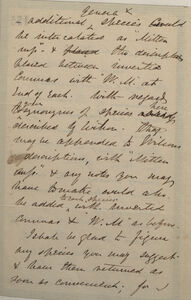 Genera &
additional species could
be intercalated as "Mitten
mss." & the descriptions
placed between inverted
Commas with "W. M" at
End of each. With regard
synonyms of species
described by Wilson. They
may be appended to Wilsons
descriptions, with "Mitten
mss." & any notes you may
have to make could also
be added with inverted
commas & "W. M" as before.
I shall be glad to figure
any species you may suggest
& have them returned as
soon as convenient; for